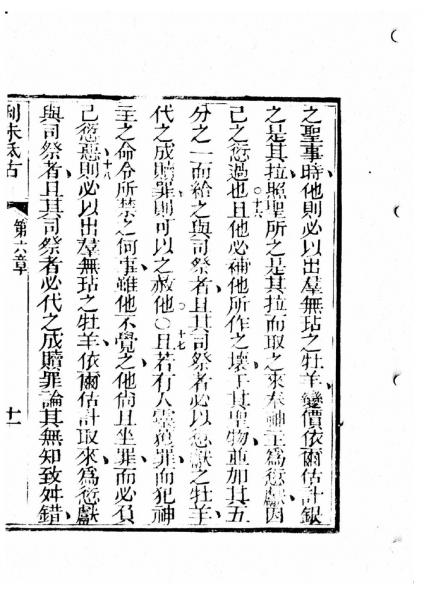 之聖事時他則必以出羣無玷之牡羊變價依爾估計銀
之是其拉照聖所之是其拉而取之來奉神主為愆獻因
己之愆過也十六且他必補他所作之壞于其聖物並加其五
分之一而給之與司祭者且其司祭者必以愆獻之牡羊
代之成贖罪則可以之赦他〇十七且若有人靈獲罪而犯神
主之命令所禁之何事雖他不覺之他尚且坐罪而必負
己愆惡十八則必以出羣無玷之牡羊依爾估計取來為愆獻
與司祭者且其司祭者必代之成贖罪論其無知致舛錯
利未氐古 第六章 十一